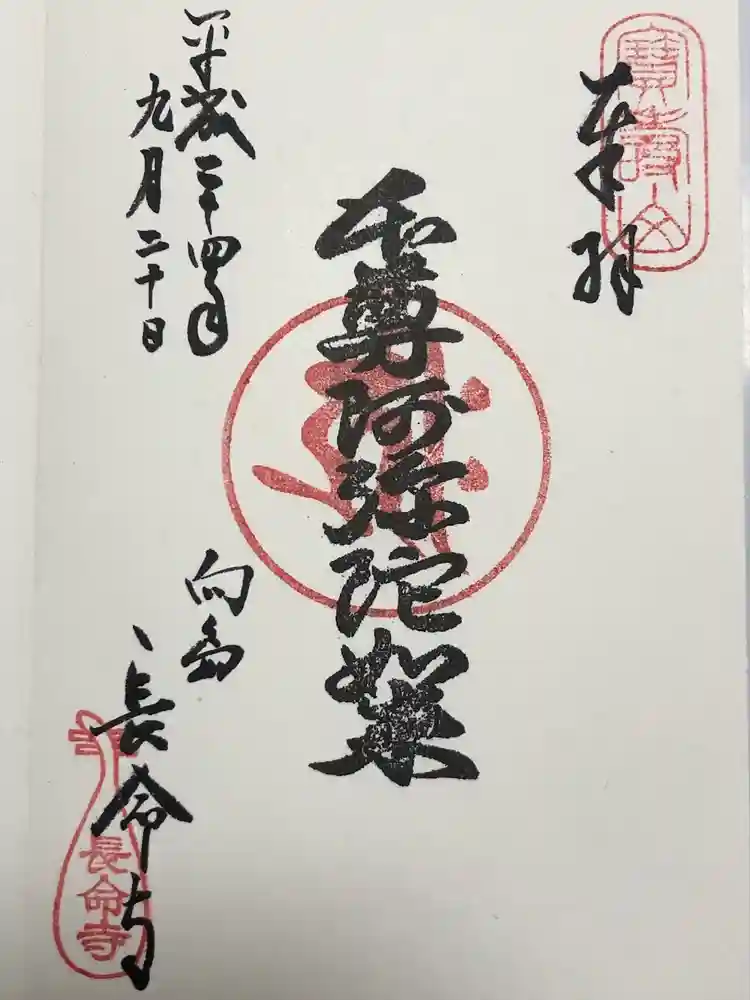 奉拝
寳壽山
本尊阿弥陀如来
平成二十四年
九月二十日
向島
長命寺
長命寺